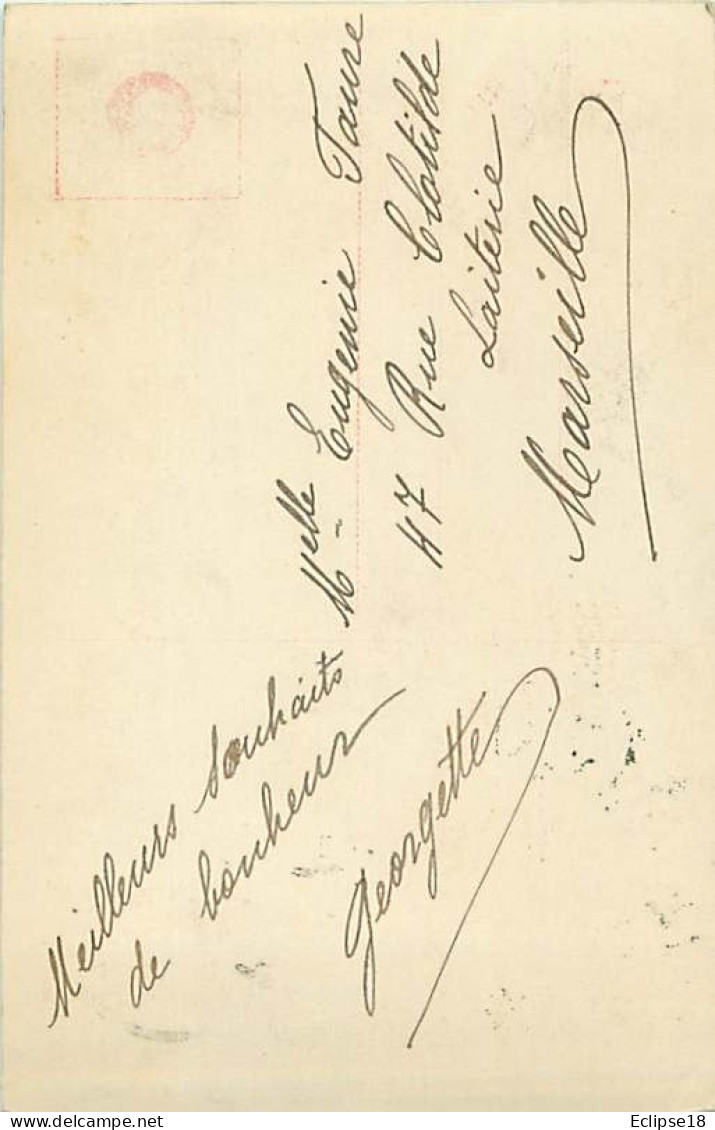 Meilleurs Souhaits
de bonheur
Georgette
Melle Eugenie Faure
47 Rue Clotilde
Laiterie
Marseille
Eclipse18